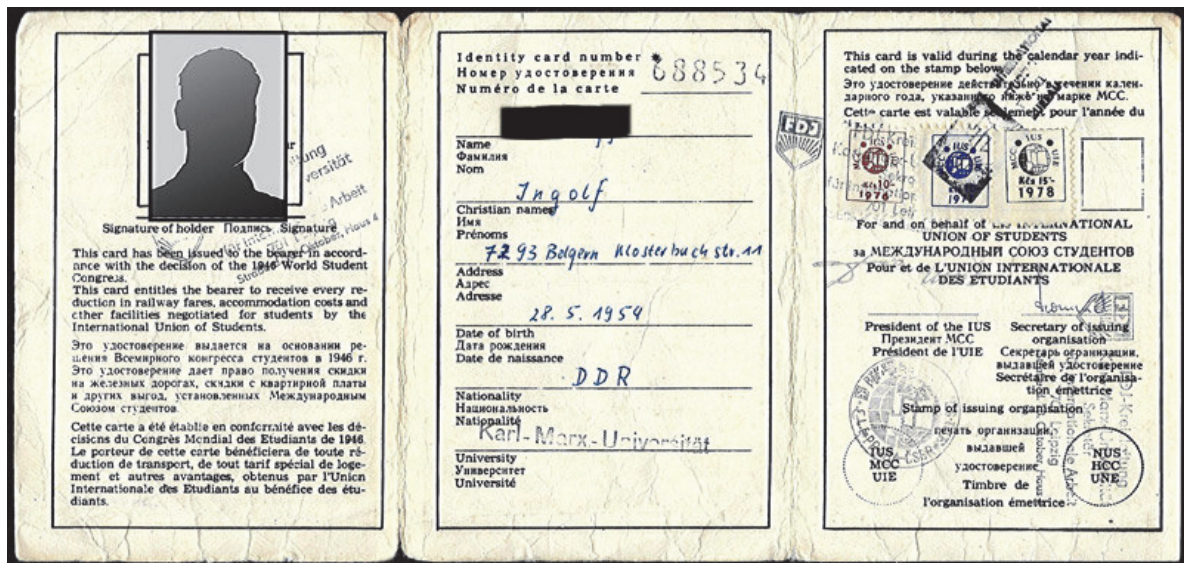 Signature of holder Подпись Signature
This card has been issued to the bearer in accord-
ance with the decision of the 1946 World Student
Congress.
This card entitles the bearer to receive every re-
duction in railway fares, accommodation costs and
other facilities negotiated for students by the
International Union of Students.
Это удостоверение выдается на основании ре-
шения Всемирного конгресса студентов в 1946 г.
Это удостоверение дает право получения скидки
на железных дорогах, скидки с квартирной платы
и других выгод, установленных Международным
Союзом студентов.
Cette carte a été établie en conformité avec les dé-
cisions du Congrès Mondial des Etudiants de 1946.
Le porteur de cette carte bénéficiera de toute ré-
duction de transport, de tout tarif spécial de loge-
ment et autres avantages, obtenus par l'Union
Internationale des Etudiants au bénéfice des étu-
diants.
Identity card number
Номер удостоверения
Numéro de la carte
688534
Name
Фамилия
Nom
Ingolf
Christian names
Имя
Prénoms
7293 Belgern Klosterbuch str. 11
Address
Адрес
Adresse
28. 5. 1954
Date of birth
Дата рождения
Date de naissance
DDR
Nationality
Национальность
Nationalité
Karl-Marx-Universität
University
Университет
Université
This card is valid during the calendar year indi-
cated on the stamp below
Это удостоверение действительно в течении кален-
дарного года, указанного ниже на марке МСС.
Cette carte est valable seulement pour l'année du
FDJ
MCC IUS UIE
Kčs 10-
1976
MCC IUS UIE
MCC IUS UIE
Kčs 15-
1978
For and on behalf of the INTERNATIONAL
UNION OF STUDENTS
за МЕЖДУНАРОДНЫЙ СОЮЗ СТУДЕНТОВ
Pour et de L'UNION INTERNATIONALE
DES ETUDIANTS
President of the IUS
Президент МСС
Président de l'UIE
Secretary of issuing
organisation
Секретарь огранизации,
выдавшей удостоверение
Secrétaire de l'organisa-
tion émettrice
Stamp of issuing organisation
печать организации,
выдавшей
удостоверение
Timbre de
l'organisation émettrice
IUS
MCC
UIE
NUS
HCC
UNE